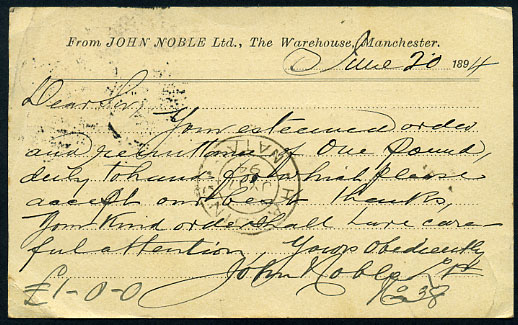 From JOHN NOBLE Ltd., The Warehouse, Manchester.
June 20 1894
Dear Sir
Your esteemed order
and remittance of One Pound,
duly to hand for which please
accept our best thanks,
Your kind order shall have care-
ful attention, Yours Obediently
John Noble Ltd
£1-0-0